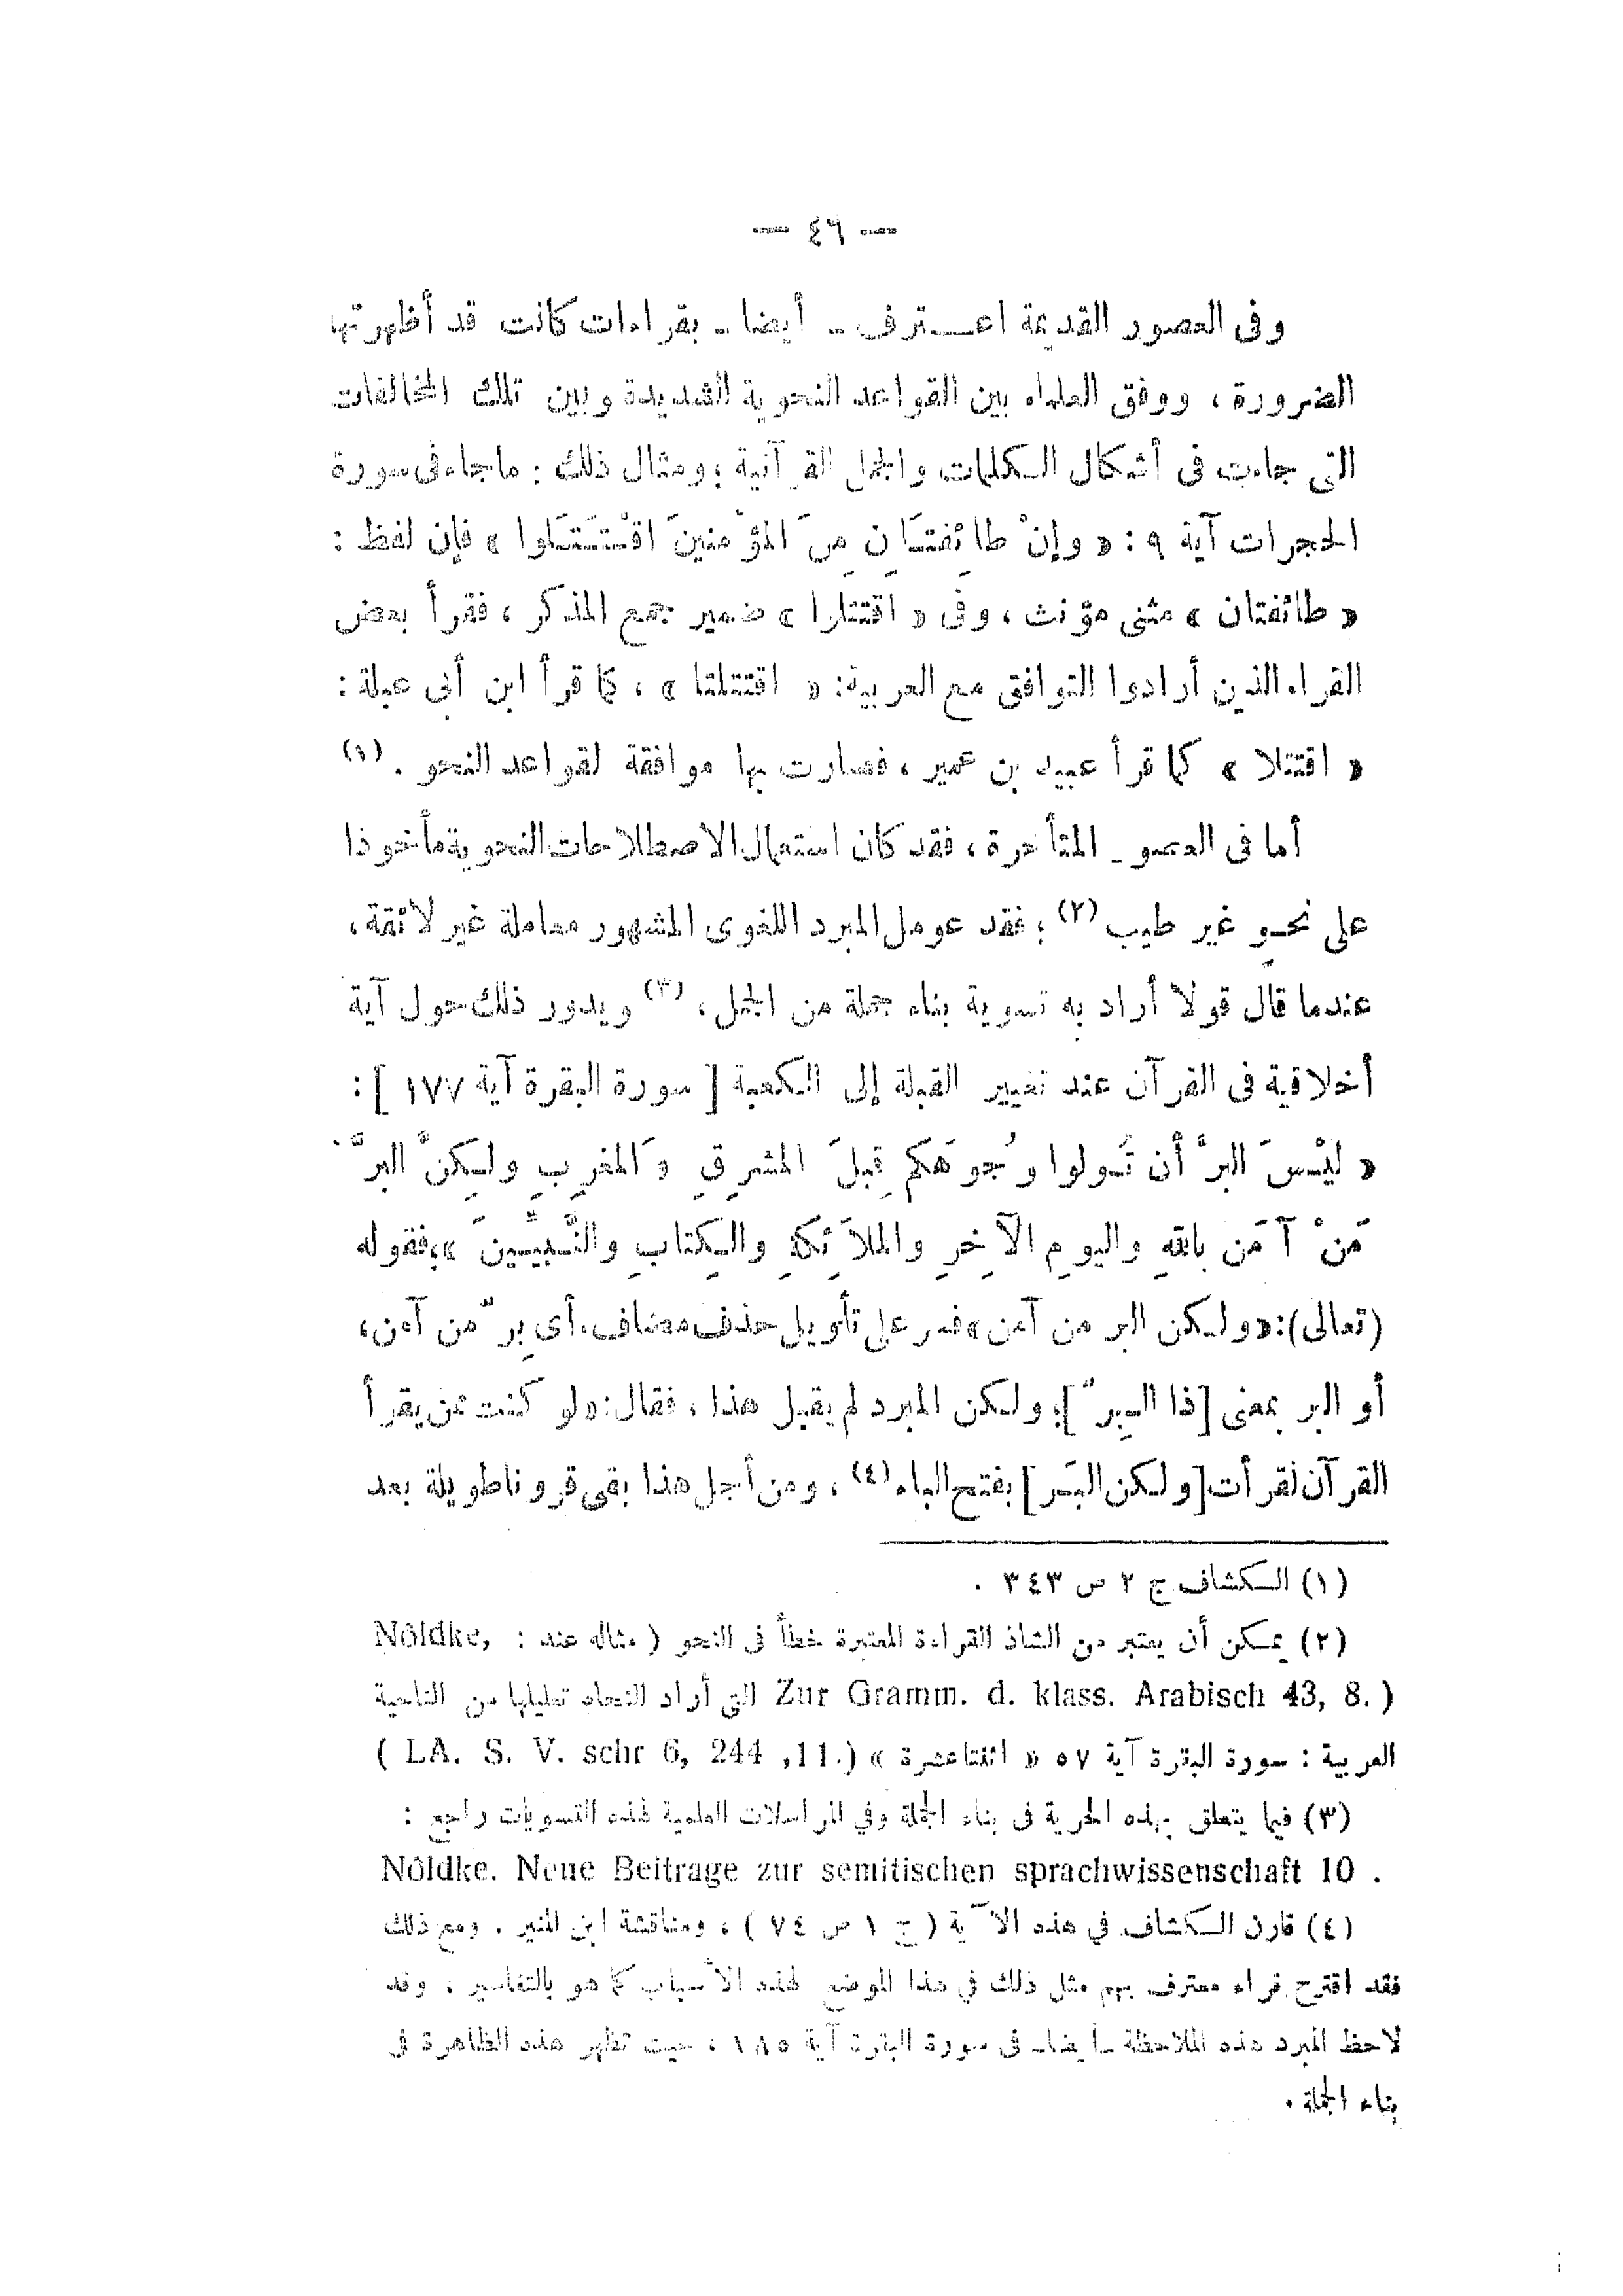 — ٤٦ —
وفى العصور القديمة اعـــترف ـ أيضا ـ بقراءات كانت قد أظهرتها
الضرورة ، ووفق العلماء بين القواعد النحوية الشديدة وبين تلك المخالفات
التى جاءت فى أشكال الـكلمات والجمل القرآنية ؛ ومثال ذلك : ما جاء فى سورة
الحجرات آية ٩ : « وإنْ طائفتـَانِ مِنَ المؤْمنينَ اقْـتـَتـَلوا » فإن لفظ :
« طائفتان » مثنى مؤنث ، وفى « اقتتلوا » ضمير جمع المذكر ، فقرأ بعض
القراء الذين أرادوا التوافق مع العربية : « اقتتلتا » ، كما قرأ ابن أبى عبلة :
« اقتتلا » كما قرأ عبيد بن عمير ، فصارت بها موافقة لقواعد النحو . (١)
أما فى العصو ـ المتأخرة ، فقد كان استعمال الاصطلاحات النحوية مأخوذا
على نحـوٍ غير طيب (٢) ؛ فقد عومل المبرد اللغوى المشهور معاملة غير لائقة ،
عندما قال قولا أراد به تسوية بناء جملة من الجمل ، (٣) ويدور ذلك حول آية
أخلاقية فى القرآن عند تغيير القبلة إلى الـكعبة [ سورة البقرة آية ١٧٧ ] :
« ليْـسَ البرَّ أن تُـولوا وُجوهَكم قِبلَ المشرِقِ وَالمغرِبِ ولـكِنَّ البرَّ
مَنْ آمَن باللهِ واليومِ الآخرِ والملائِكةِ والـكِتابِ والنَّـبيِّـينَ » ، فقوله
(تعالى) : « ولـكن البر من آمن » فسر على تأويل حذف مضاف . أى بِرّ من آمن ،
أو البر بمعنى [ذا الـبِرّ] ؛ ولـكن المبرد لم يقبل هذا ، فقال : « لو كنت ممن يقرأ
القرآن لقرأت [ولـكن البَـر] بفتح الباء (٤) ، ومن أجل هذا بقى قرونا طويلة بعد
(١) الـكشاف ج ٢ ص ٣٤٣ .
(٢) يمـكن أن يعتبر من الشاذ القراءة المعتبرة خطأ فى النحو ( مثاله عند : Nôldke,
Zur Gramm. d. klass. Arabisch 43, 8. ) التى أراد النحاه تعليلها من الناحية
العربية : سورة البقرة آية ٥٧ « اثنتا عشرة » ( LA. S. V. schr 6, 244 ,11.)
(٣) فيما يتعلق بهذه الحرية فى بناء الجملة وفي المراسلات العلمية لهذه التسويات راجع :
Nôldke. Neue Beitrage zur semitischen sprachwissenschaft 10 .
(٤) قارن الـكشاف في هذه الآية ( ج ١ ص ٧٤ ) ، ومناقشة ابن المنير . ومع ذلك
فقد اقترح قراء معترف بهم مثل ذلك في هذا الموضع لهذه الأسباب كما هو بالتفاسير ، وقد
لاحظ المبرد هذه الملاحظة ـ أيضا ـ فى سورة البقرة آية ١٨٥ ، حيث تظهر هذه الظاهرة فى
بناء الجملة .